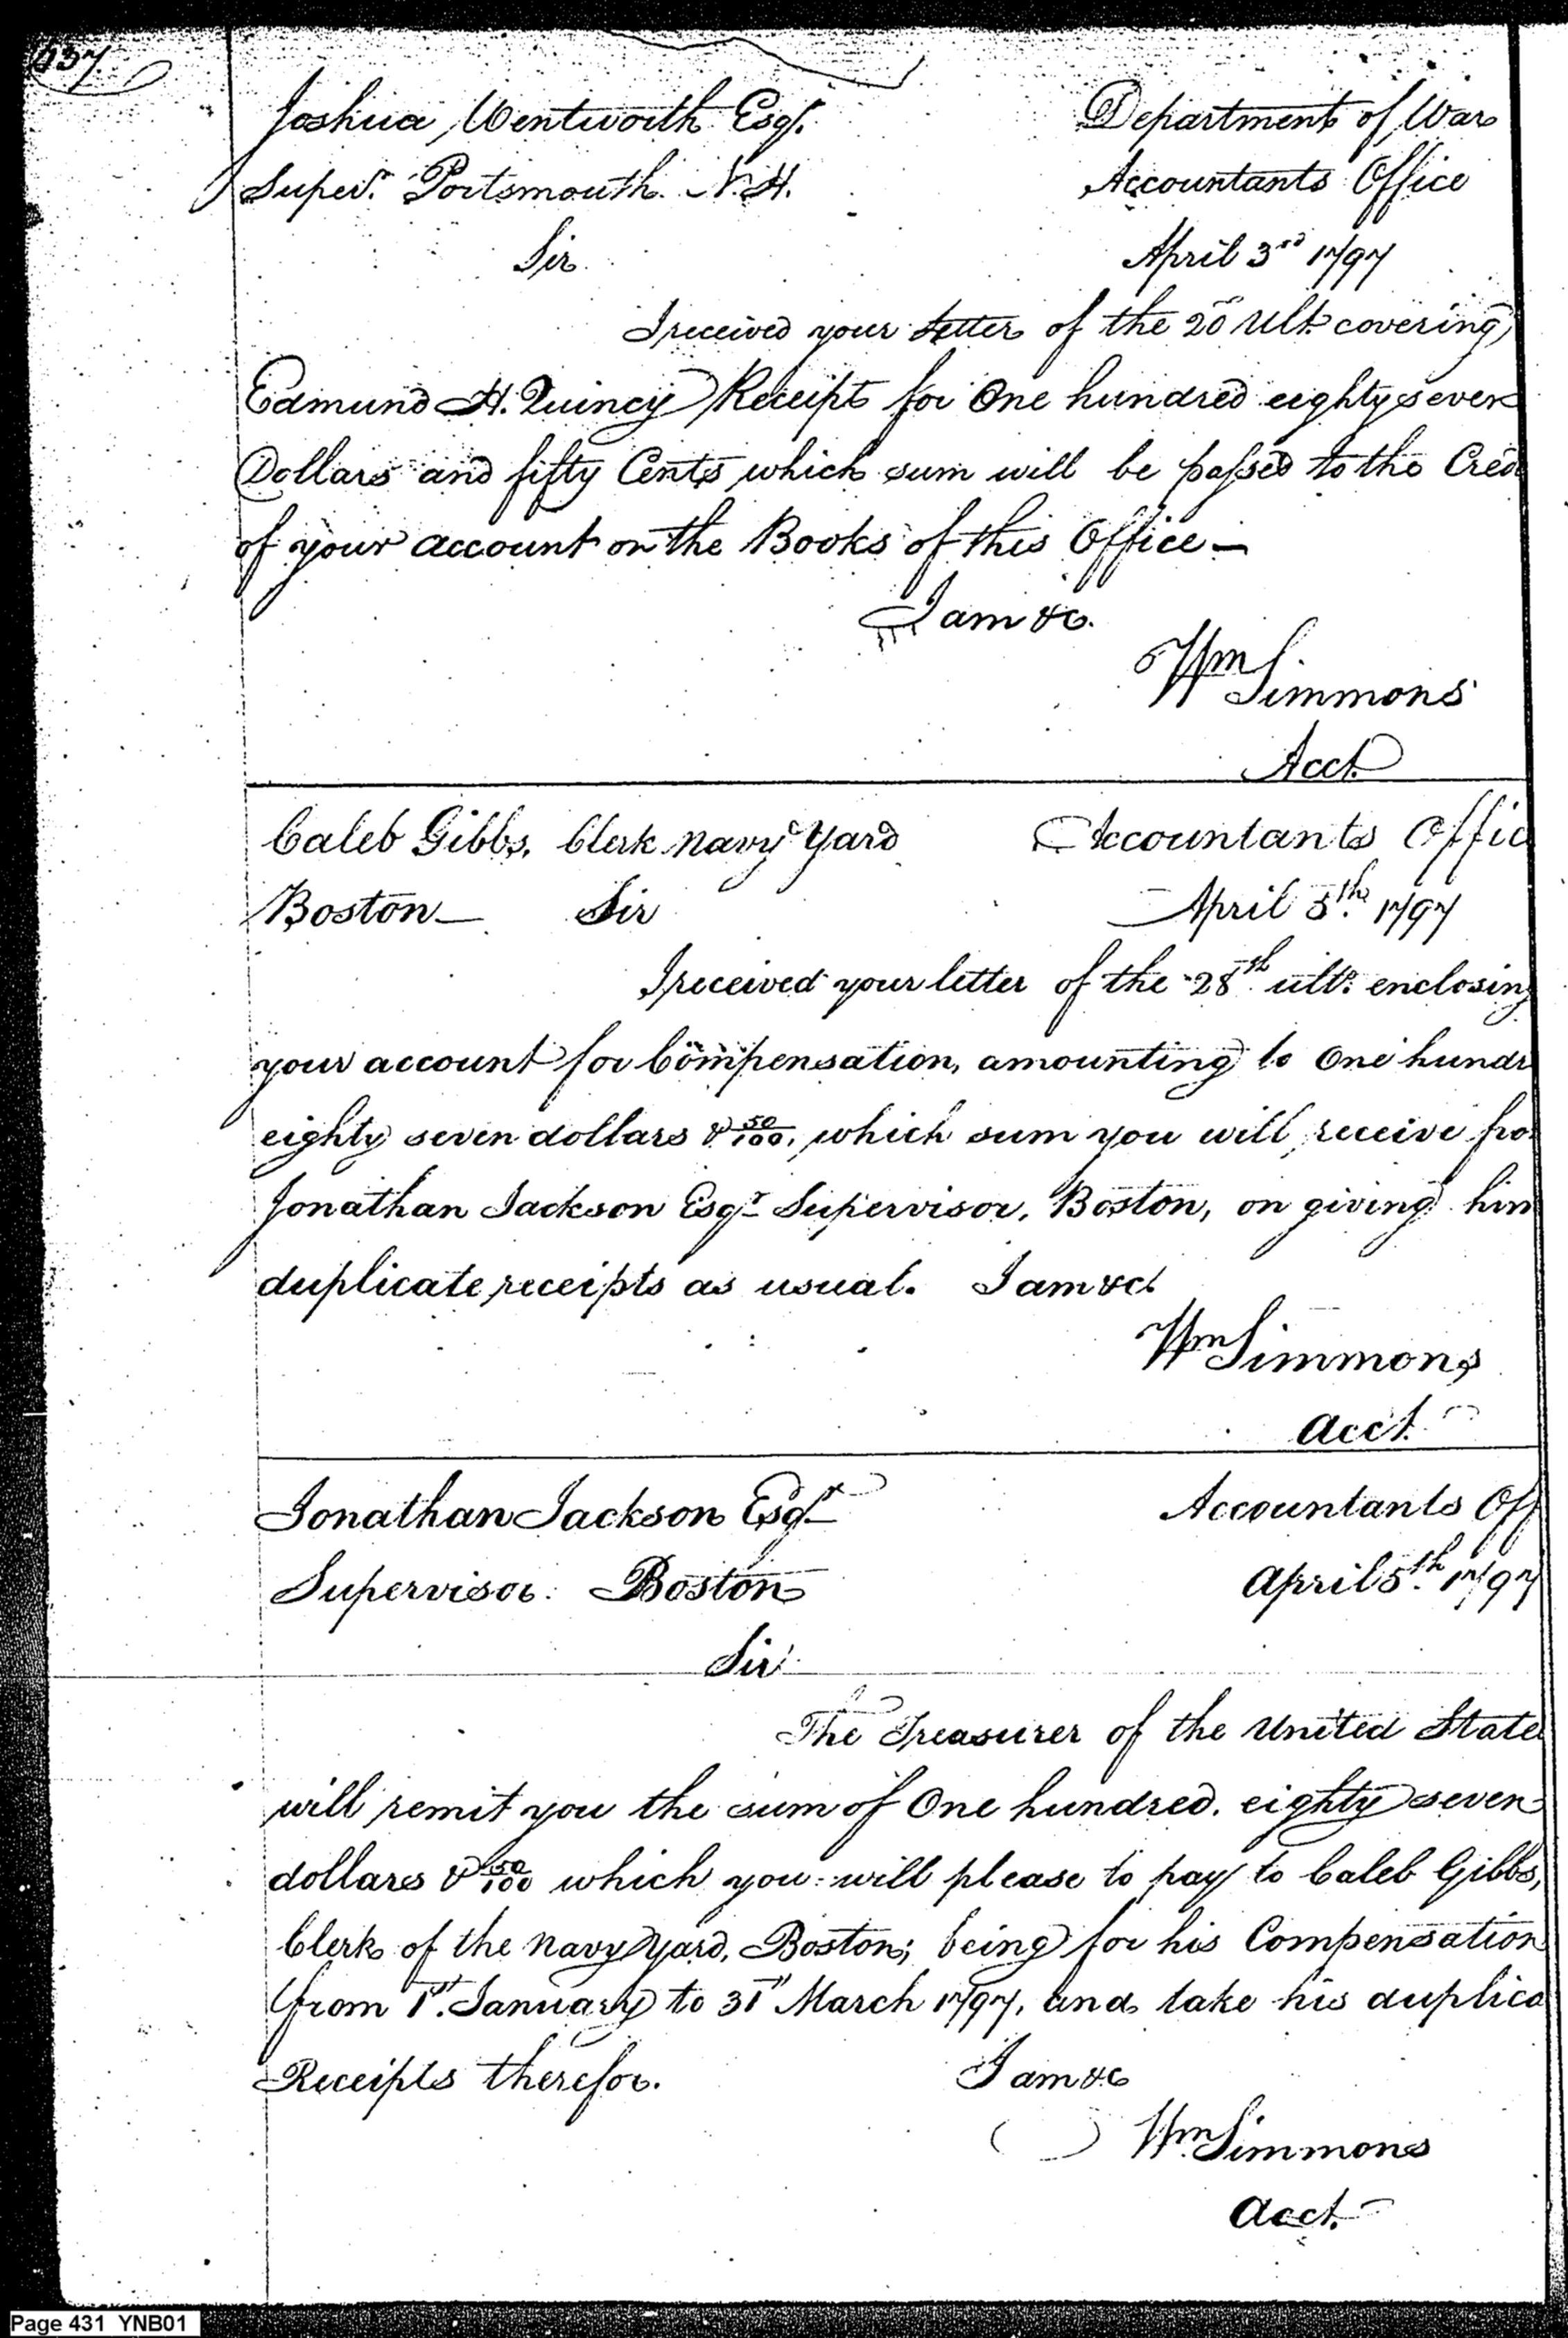 437
Joshua Wentworth Esqr. Department of War
Superr. Portsmouth. N.H. Accountants Office
Sir April 3rd 1797
I received your letter of the 20th Ulto. covering
Edmund H. Quincy Receipt for One hundred eighty seven
Dollars and fifty Cents which sum will be passed to the Cred
of your account on the Books of this Office —
I am &c.
Wm Simmons
Acct.
Caleb Gibbs, Clerk Navy Yard Accountants Offic
Boston — Sir April 5th. 1797
I received your letter of the 28th. ulto. enclosing
your account for Compensation, amounting to One hundr
eighty seven dollars & 50/100, which sum you will receive fro
Jonathan Jackson Esqr. Supervisor, Boston, on giving him
duplicate receipts as usual. I am &c
Wm Simmons
Acct.
Jonathan Jackson Esqr. Accountants Off
Supervisor. Boston April 5th. 1797
Sir
The Treasurer of the United State
will remit you the sum of One hundred. eighty seven
dollars & 50/100 which you will please to pay to Caleb Gibbs,
Clerk of the Navy Yard, Boston; being for his Compensation
from 1st. January to 31st March 1797, and take his duplica
Receipts therefor. I am &c
Wm Simmons
Acct.
Page 431 YNB01